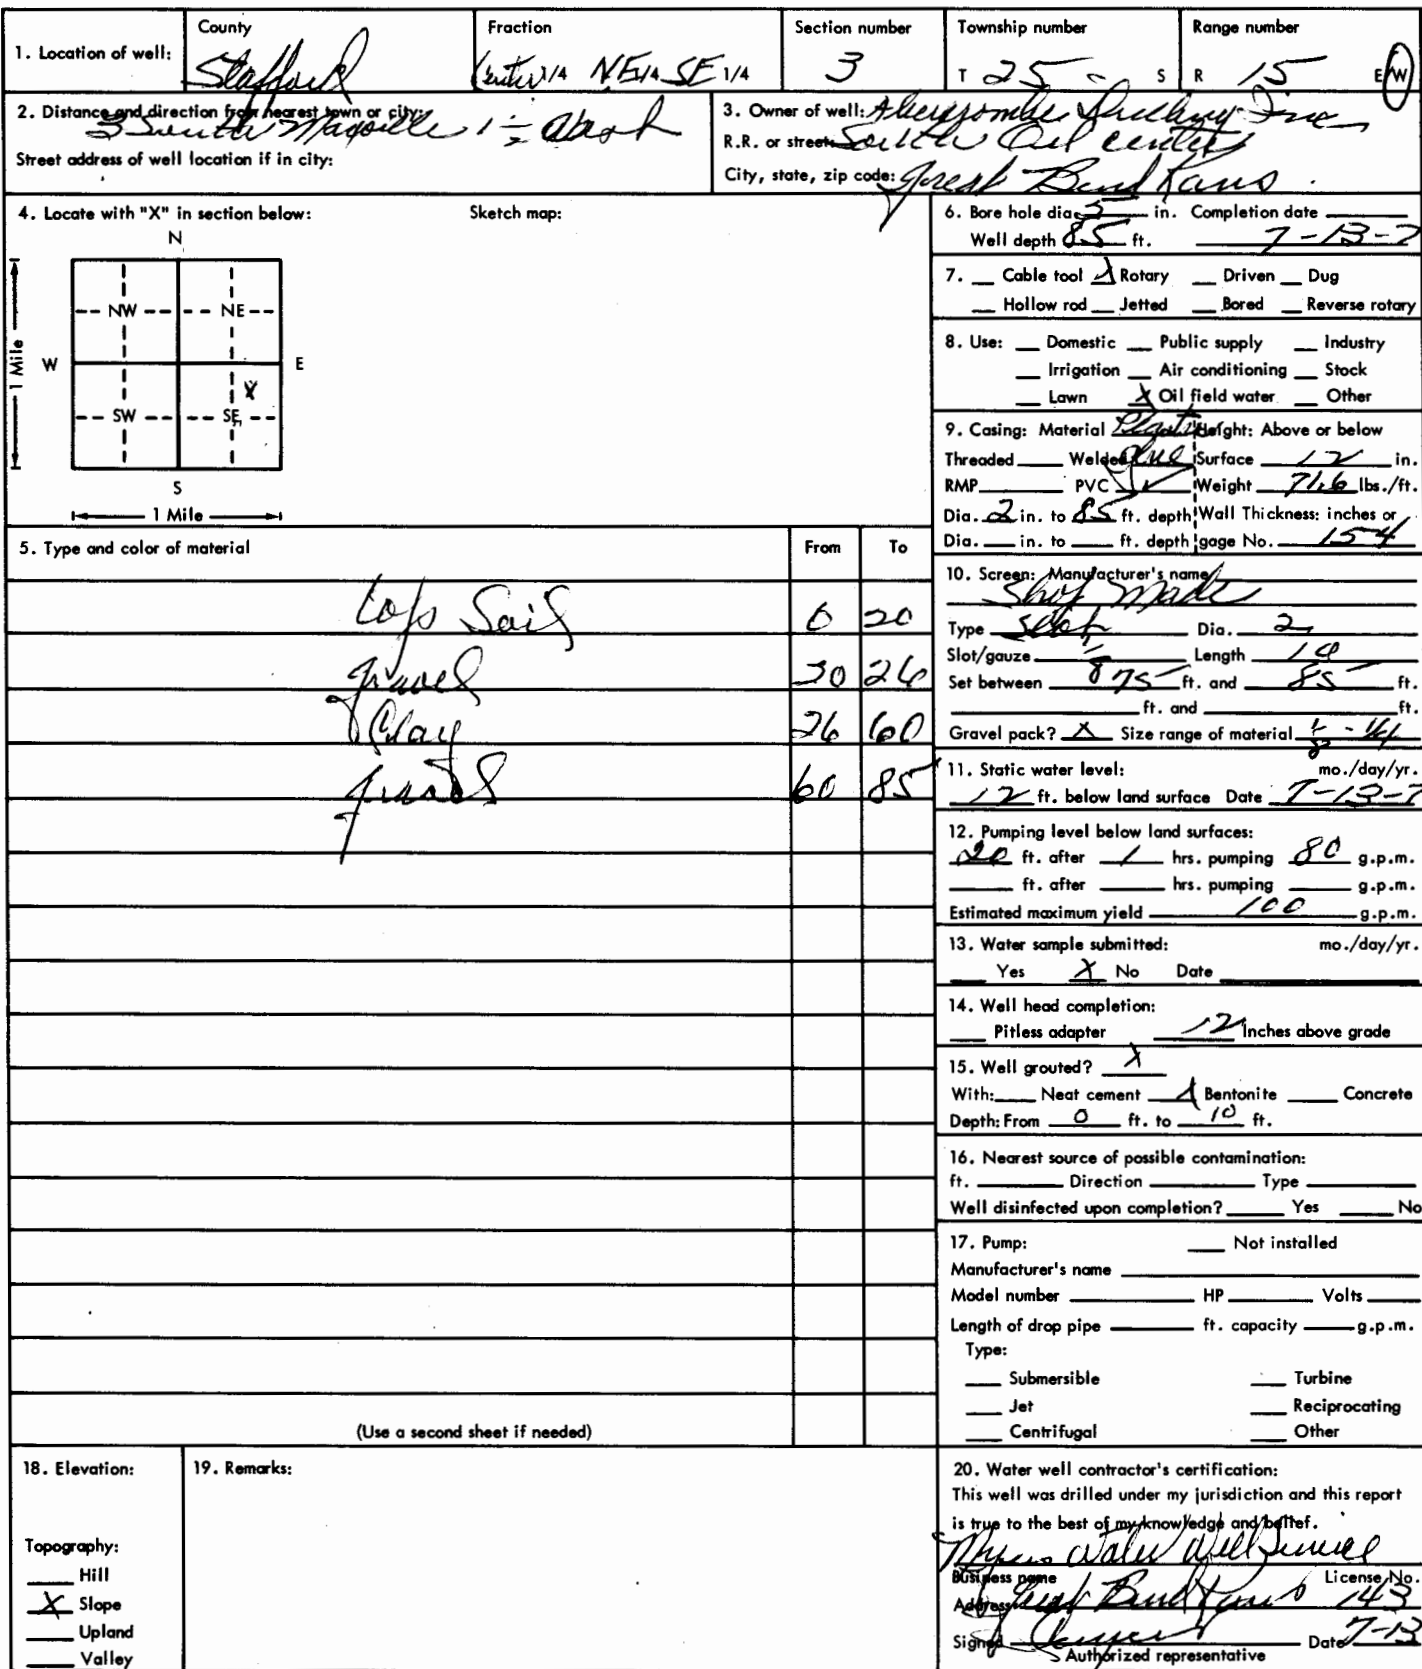 1. Location of well:
County
Stafford
Fraction
Center 1/4 NE 1/4 SE 1/4
Section number
3
Township number
T 25 S
Range number
R 15 E W
2. Distance and direction from nearest town or city:
3 South 1 1/2
Street address of well location if in city:
3. Owner of well: Abercrombie Drilling Inc
R.R. or street: South Oil center
City, state, zip code: Great Bend Kans
4. Locate with "X" in section below:
Sketch map:
N
NW NE
W E
X
SW SE
S
1 Mile
1 Mile
6. Bore hole dia. 5 in. Completion date
Well depth 85 ft. 7-13-7
7. Cable tool X Rotary Driven Dug
Hollow rod Jetted Bored Reverse rotary
8. Use: Domestic Public supply Industry
Irrigation Air conditioning Stock
Lawn X Oil field water Other
9. Casing: Material Plastic Height: Above or below
Threaded Welded Glue Surface 12 in.
RMP PVC ✓ Weight 71.6 lbs./ft.
Dia. 2 in. to 85 ft. depth Wall Thickness: inches or
Dia. in. to ft. depth gage No. 154
5. Type and color of material
From To
top Soil 0 20
gravel 20 26
Clay 26 60
gravel 60 85
10. Screen: Manufacturer's name
Shop Made
Type Slot Dia. 2
Slot/gauze Length 10
Set between 75 ft. and 85 ft.
ft. and ft.
Gravel pack? X Size range of material 1/8 - 1/4
11. Static water level: mo./day/yr.
12 ft. below land surface Date 7-13-7
12. Pumping level below land surfaces:
20 ft. after 1 hrs. pumping 80 g.p.m.
ft. after hrs. pumping g.p.m.
Estimated maximum yield 100 g.p.m.
13. Water sample submitted: mo./day/yr.
Yes X No Date
14. Well head completion:
Pitless adapter 12 Inches above grade
15. Well grouted? X
With: Neat cement X Bentonite Concrete
Depth: From 0 ft. to 10 ft.
16. Nearest source of possible contamination:
ft. Direction Type
Well disinfected upon completion? Yes No
17. Pump: Not installed
Manufacturer's name
Model number HP Volts
Length of drop pipe ft. capacity g.p.m.
Type:
Submersible Turbine
Jet Reciprocating
Centrifugal Other
(Use a second sheet if needed)
18. Elevation:
Topography:
Hill
X Slope
Upland
Valley
19. Remarks:
20. Water well contractor's certification:
This well was drilled under my jurisdiction and this report
is true to the best of my knowledge and belief.
Myers Water Well Service
Business name License No.
Address Great Bend Kans 143
Signed Date 7-13
Authorized representative